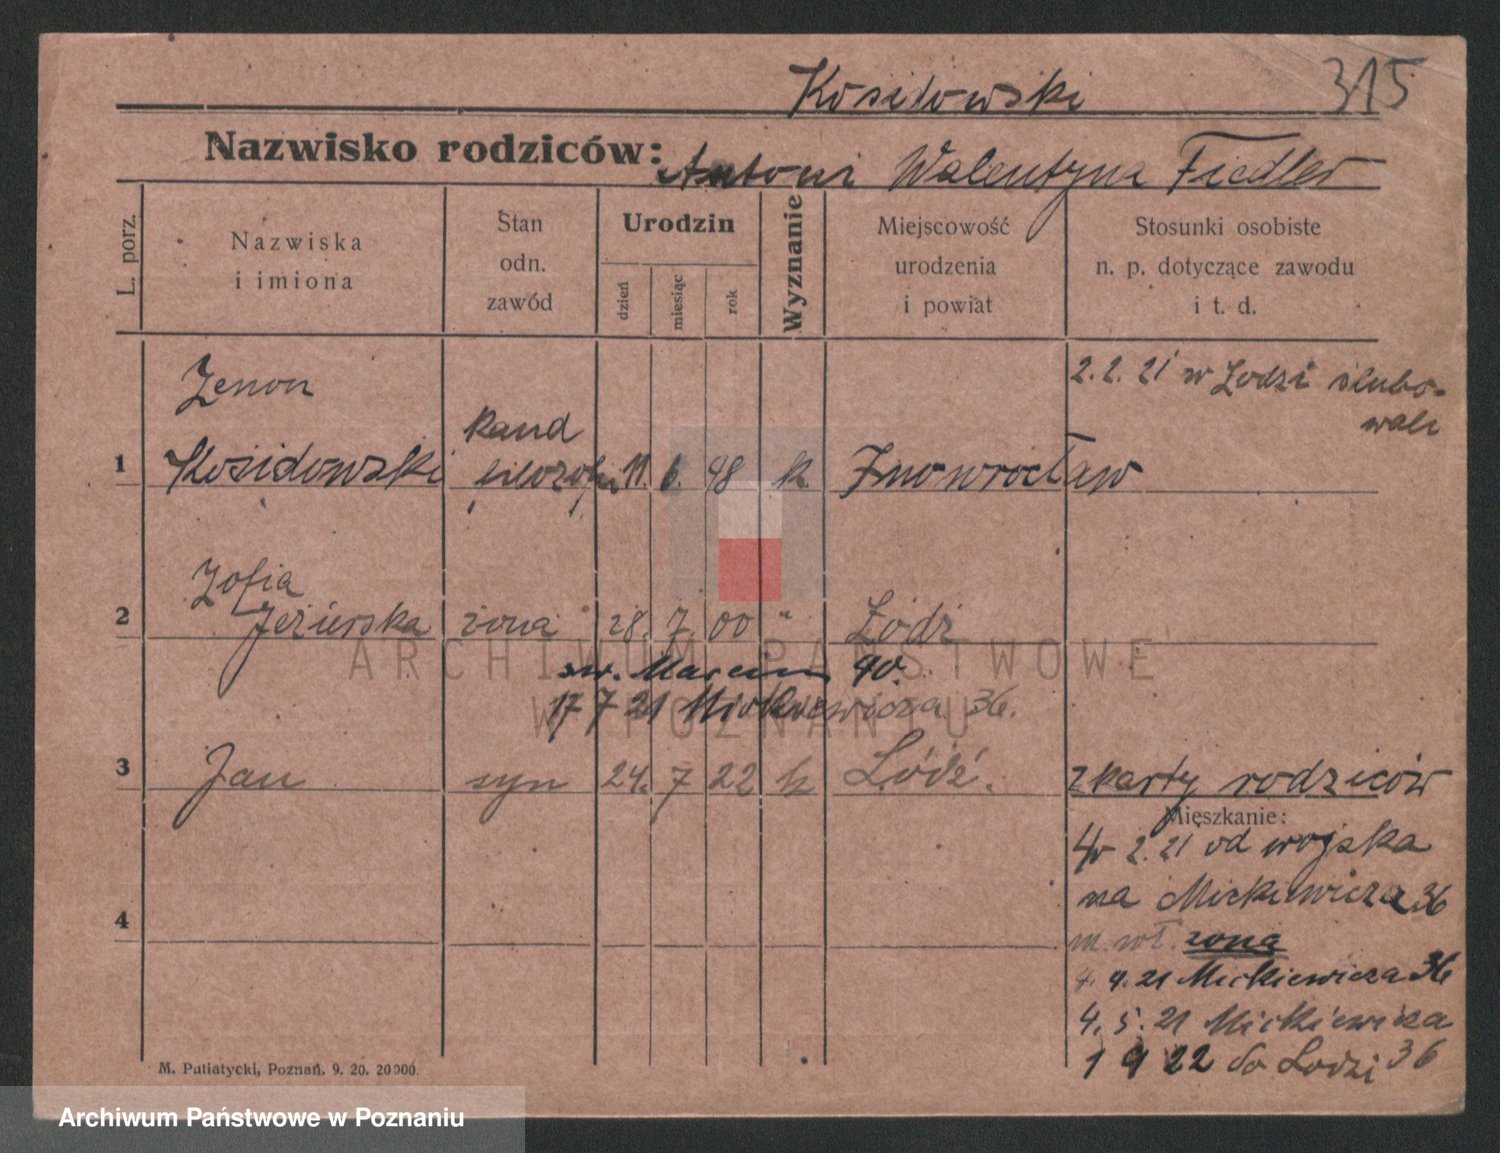 Kosidowski 315
Nazwisko rodziców: Antoni Walentyna Fiedler
L. porz.
Nazwiska
i imiona
Stan
odn.
zawód
Urodzin
dzień
miesiąc
rok
Wyznanie
Miejscowość
urodzenia
i powiat
Stosunki osobiste
n. p. dotyczące zawodu
i t. d.
2. 2. 21 w Łodzi ślubo-
wali
Zenon
1 Kosidowski kand filozofii 11. 6. 98 k Inowrocław
Zofia
2 Jezierska żona 28. 7. 00 " Łódź
św. Marcin 40.
17 7 21 Mickiewicza 36.
3 Jan syn 24. 7 22 k Łódź.
z karty rodziców
Mieszkanie:
2. 21 od wojska
na Mickiewicza 36
4
m. wł. żona
4. 4. 21 Mickiewicza 36
4. 5. 21 Mickiewicza
36
1 9 22 do Łodzi
M. Putiatycki, Poznań. 9. 20. 20000.
ARCHIWUM PAŃSTWOWE
W POZNANIU
Archiwum Państwowe w Poznaniu